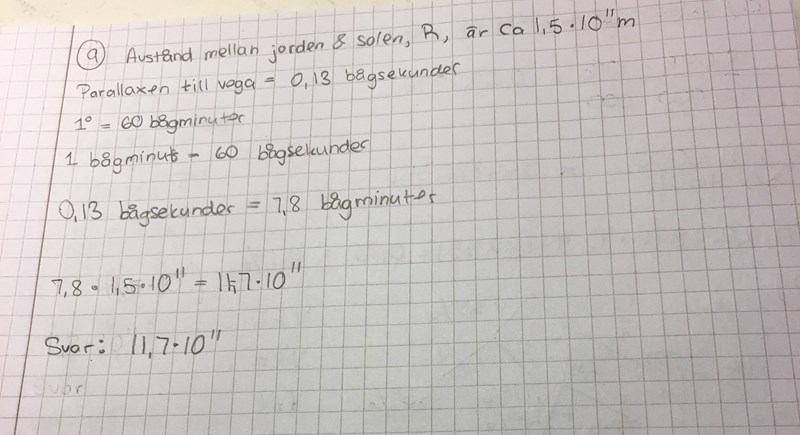 a Avstånd mellan jorden & solen, R, är ca 1,5·10¹¹m
Parallaxen till vega = 0,13 bågsekunder
1° = 60 bågminuter
1 bågminut = 60 bågsekunder
0,13 bågsekunder = 7,8 bågminuter
7,8 · 1,5·10¹¹ = 11,7·10¹¹
Svar: 11,7·10¹¹
Svar